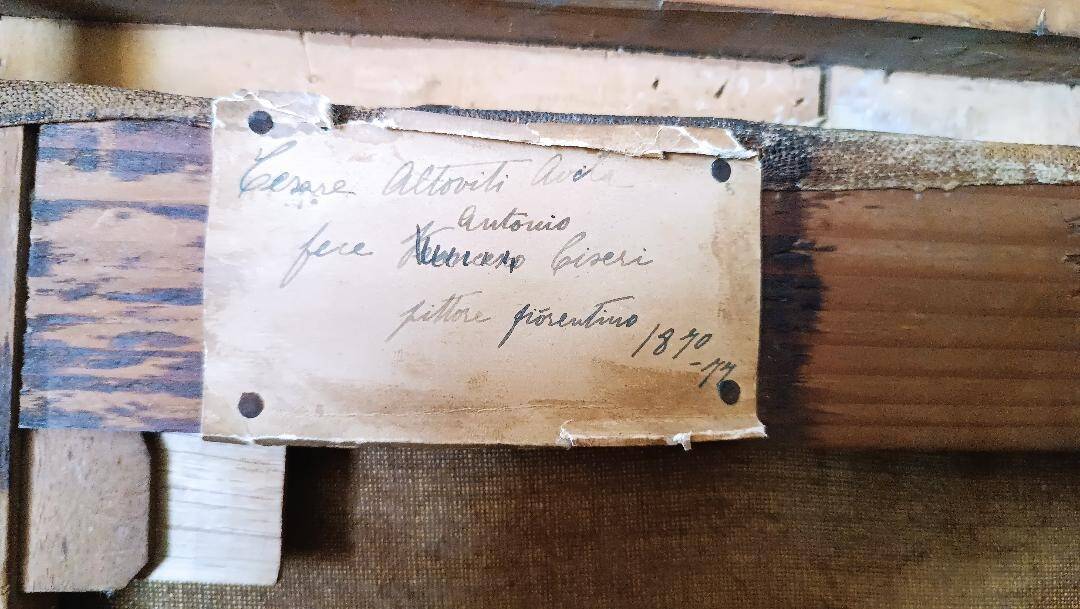 Cesare Altoviti Avila
Antonio
fece Ciseri
pittore fiorentino
1870
-77